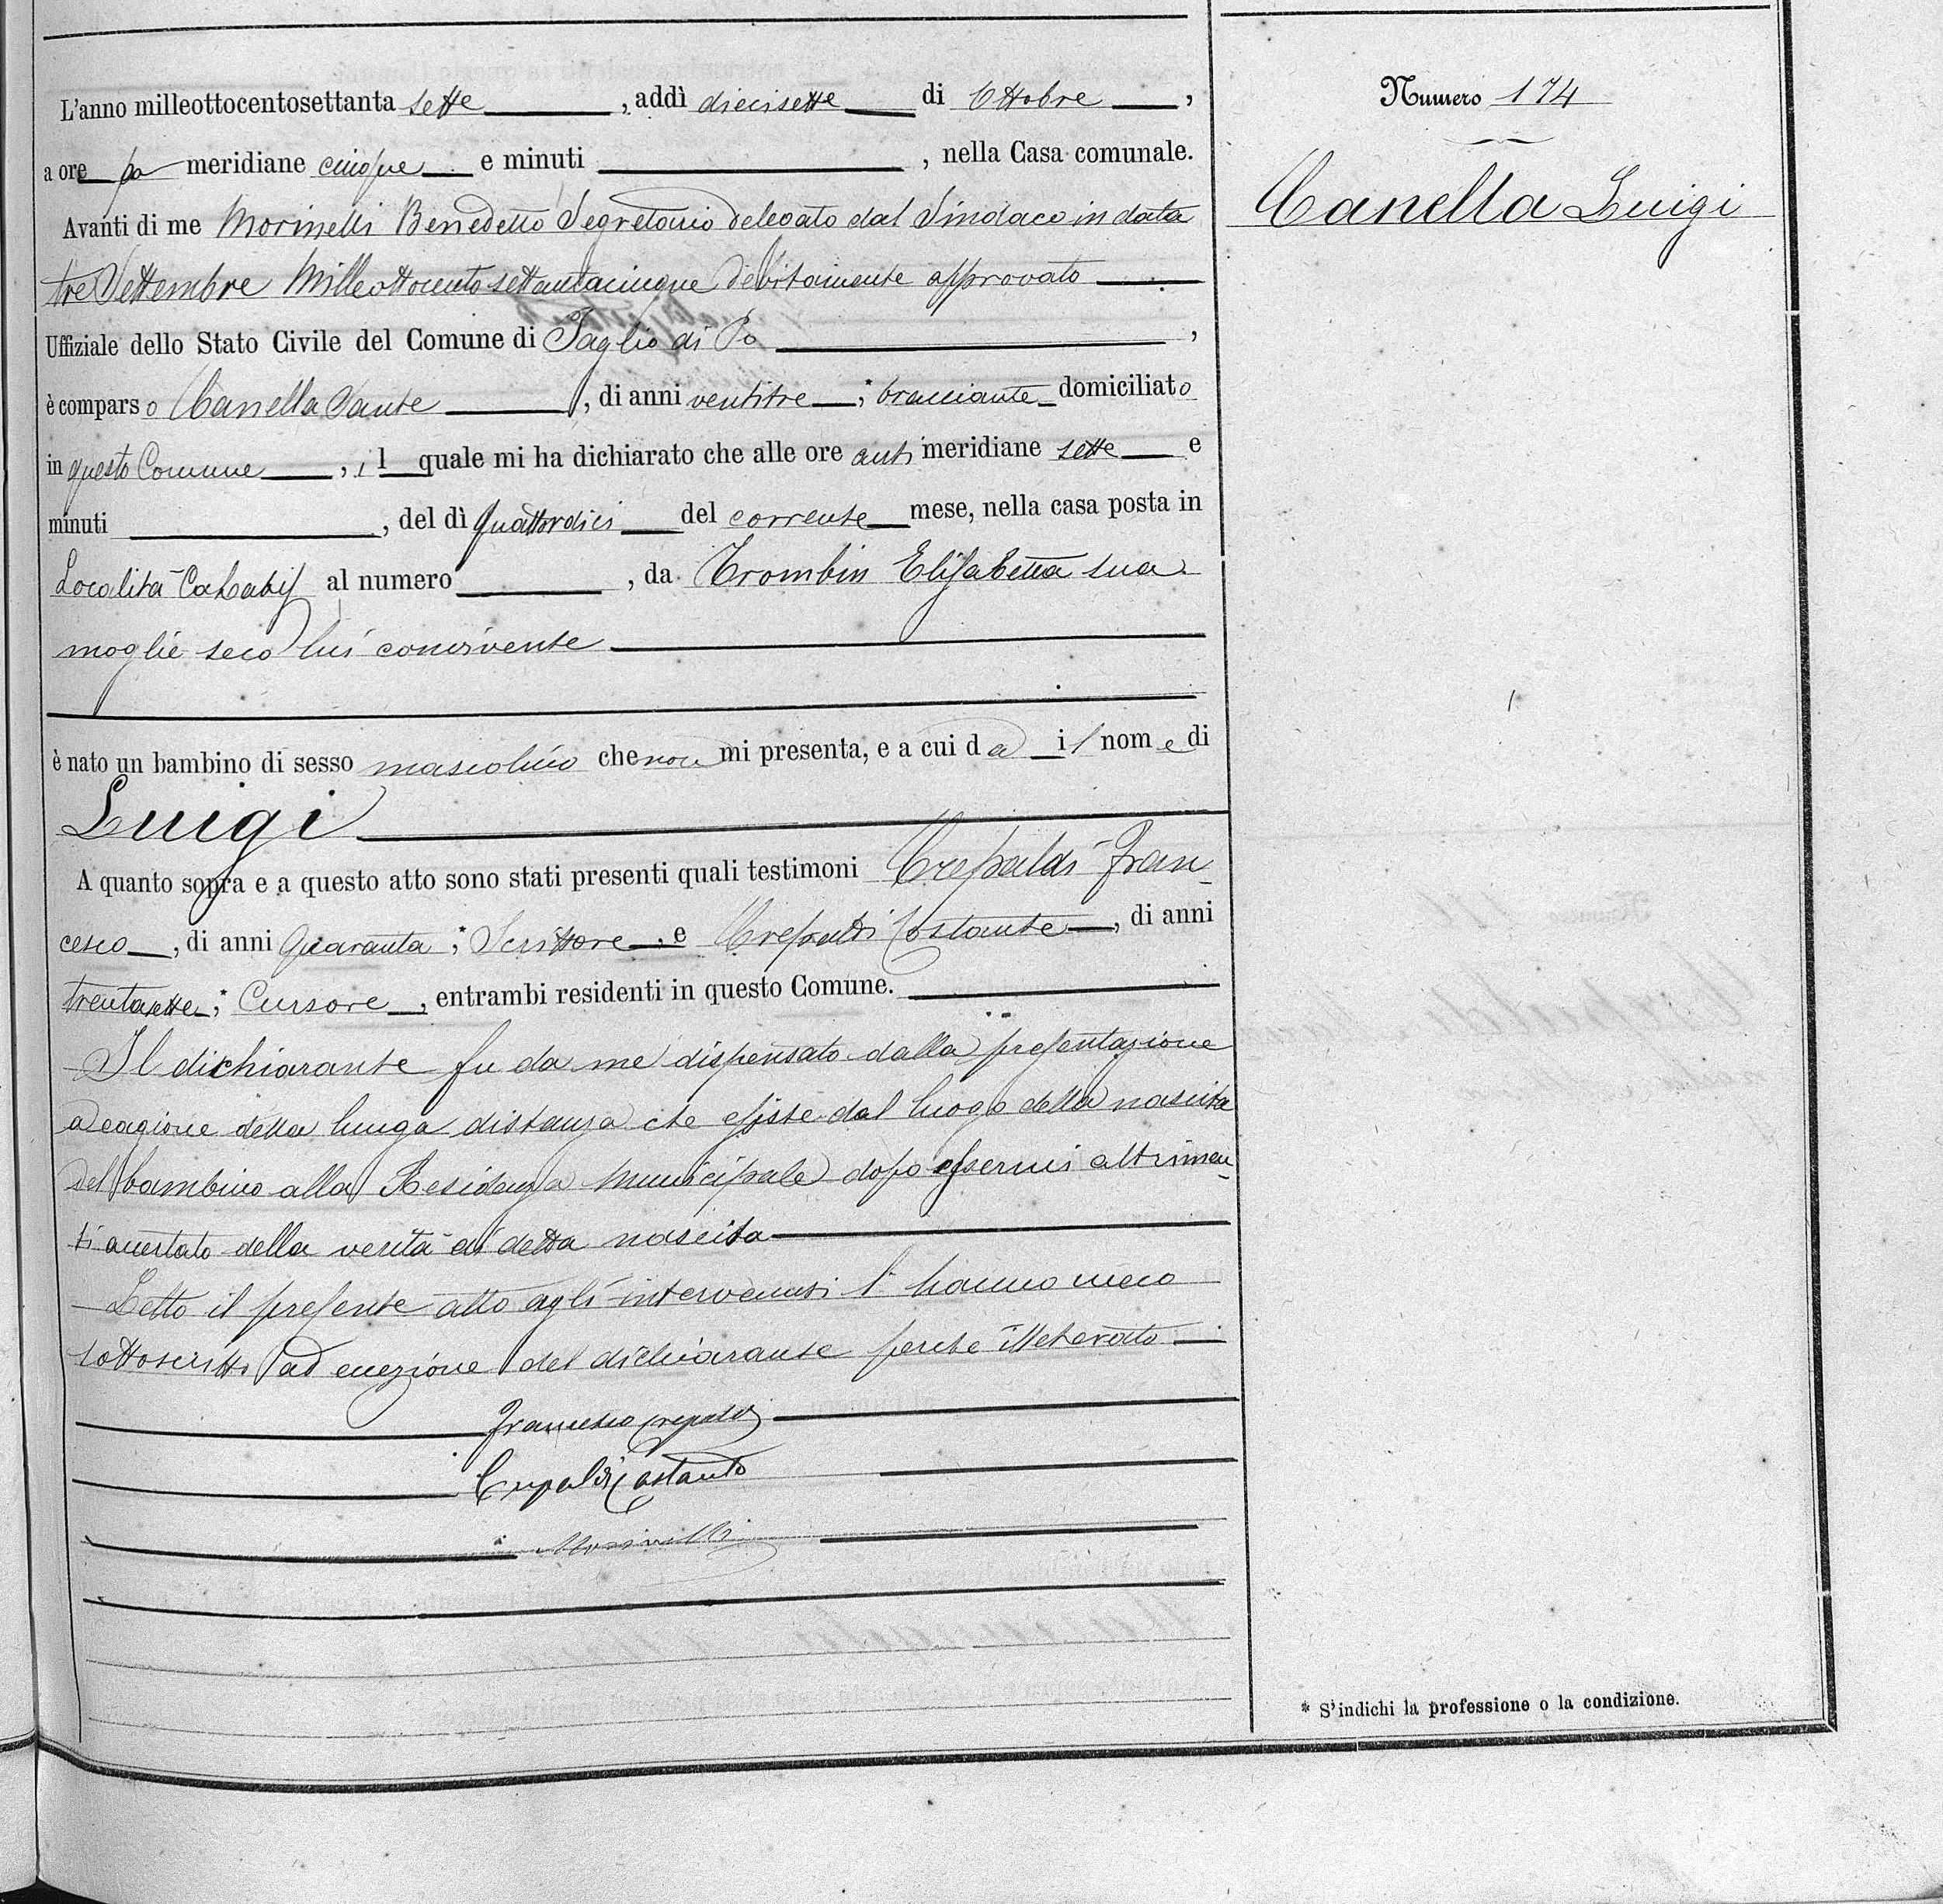 L'anno milleottocentosettanta sette, addì diecisette di Ottobre,
a ore po meridiane cinque e minuti, nella Casa comunale.
Avanti di me Morinelli Benedetto Segretario delegato dal Sindaco in data
tre Settembre Milleottocentosettantacinque debitamente approvato
Uffiziale dello Stato Civile del Comune di Taglio di Po,
è comparso Canella Sante, di anni ventitre, * bracciante domiciliato
in questo Comune, il quale mi ha dichiarato che alle ore anti meridiane sette e
minuti, del dì quattordici del corrente mese, nella casa posta in
Località al numero, da Trombin Elisabetta sua
moglie seco lui convivente
è nato un bambino di sesso mascolino che non mi presenta, e a cui dà il nome di
Luigi
A quanto sopra e a questo atto sono stati presenti quali testimoni Crepaldi Fran-
cesco, di anni quaranta, * Scrittore, e Crepaldi Costante, di anni
trentasette, * Cursore, entrambi residenti in questo Comune.
Il dichiarante fu da me dispensato dalla presentazione
a cagione della lunga distanza che esiste dal luogo della nascita
del bambino alla Residenza Municipale dopo essermi altrimen-
ti accertato della verità di detta nascita
Letto il presente atto agli intervenuti l'hanno meco
sottoscritto ad eccezione del dichiarante perché illetterato
Francesco Crepaldi
Crepaldi Costante
Morinelli
Numero 174
Canella Luigi
* S'indichi la professione o la condizione.